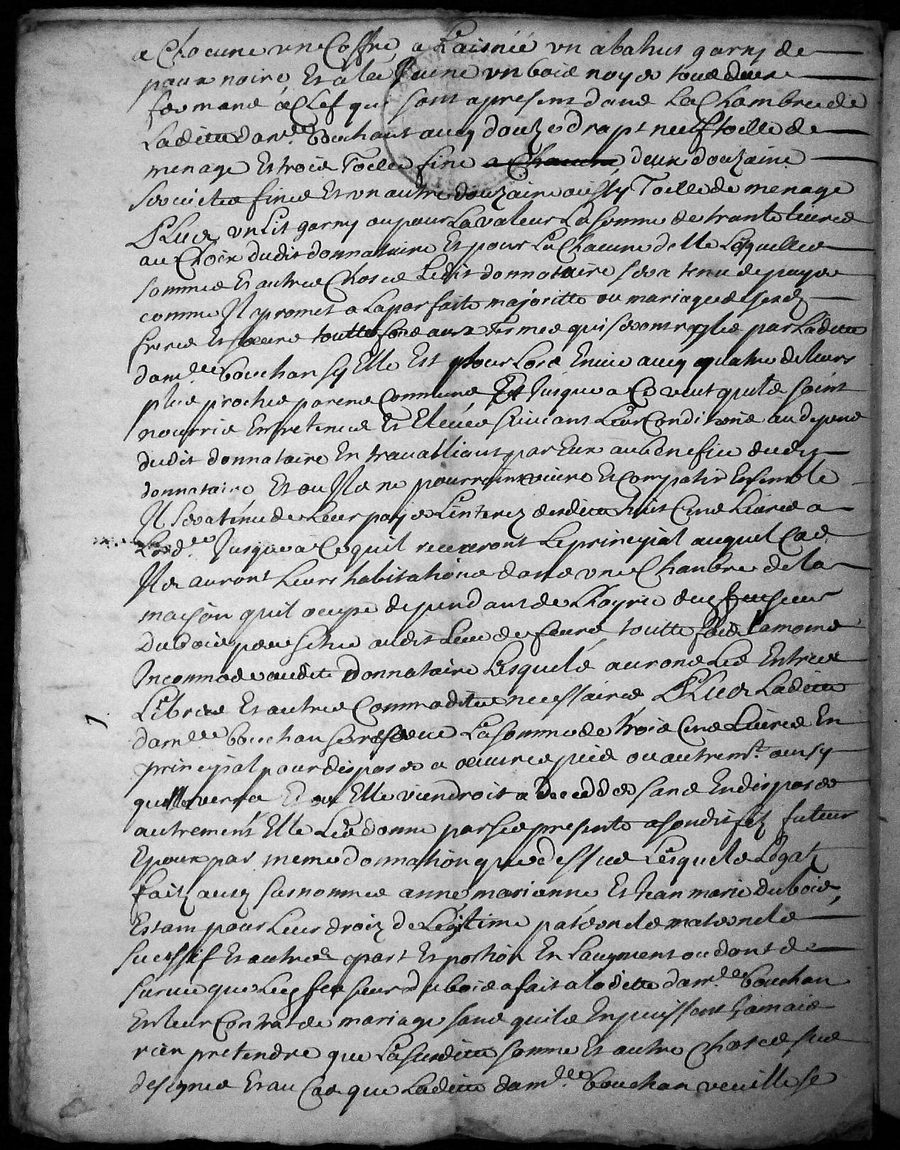 a Chacune un Coffre a Laisnée un abahus garny de
peaux noire Et a la Jeune un bois noyer tous deux
fermans a Clef qui sont apresent dans La Chambre de
Laditte dam.lle bouchan aucy douze drapt neuf toille de
menage Et trois Toille fine a Chacune deux douzaine
Serviettes fines Et un autre douzaine aussy Toille de menage
Plus un Lit garny ou pour La valeur La somme de trante Livres
au Choix dudit donnataire Et pour La Chacune delle Lesquelles
sommes Et autres Choses Ledit donnataire sera tenu de payer
comme Il promet a La parfaite majoritte ou mariage de sesd.
freres Et soeurs touttefois aux Termes qui seront reglés par Laditte
dam.lle bouchan sy Elle Est pour Lors En vie aucy quatre de leurs
plus proches parens Communs Et Jusque a Ce veut quils soint
nourris Entretenus Et Elevés suivant Leur Conditions au depens
dudit donnataire En travailliant par Eux au benefice dudit
donnataire Et ou Ils ne pourroint vivre Et Compatir Ensemble
Il sera tenu de Leur payer L'interez desdittes huit Cens Livres a
Jusques a Ce quil recevront Le principal auquel Cas
Ils auront Leurs habitations dans une Chambre de la
maison quil occupe dependant de L'hoyrie du feu sieur
Dubois audit Lieu de toutte fois La moins
Incommode audit donnataire Lesquels auront Les Entrées
Libres Et autres Commodittes necessaires Plus Laditte
dam.lle bouchan se reserve La somme de trois Cens Livres En
principal pour disposer a oeuvres pies ou autrem.t ainsy
quelle verra Et ou Elle viendroit a deceder sans En disposer
autrement Elle Les donne par ses presente a sondit fils futeur
Epoux par meme donnation que dessus Lesquels Legat
fait aux sus nommés anne marianne Et Jean marie dubois
Est tam pour Leur droit de Legitime paternele maternele
sucessif Et autres part Et portion En Laugment ou dont de
survie que Led feu sieur dubois a fait a laditte dam.lle bouchan
En leur Contrat de mariage sans quils En puissent Jamais
rien pretendre que La susditte somme Et autre Choses sus
designés Et au Cas que Laditte dam.lle bouchan veuille se